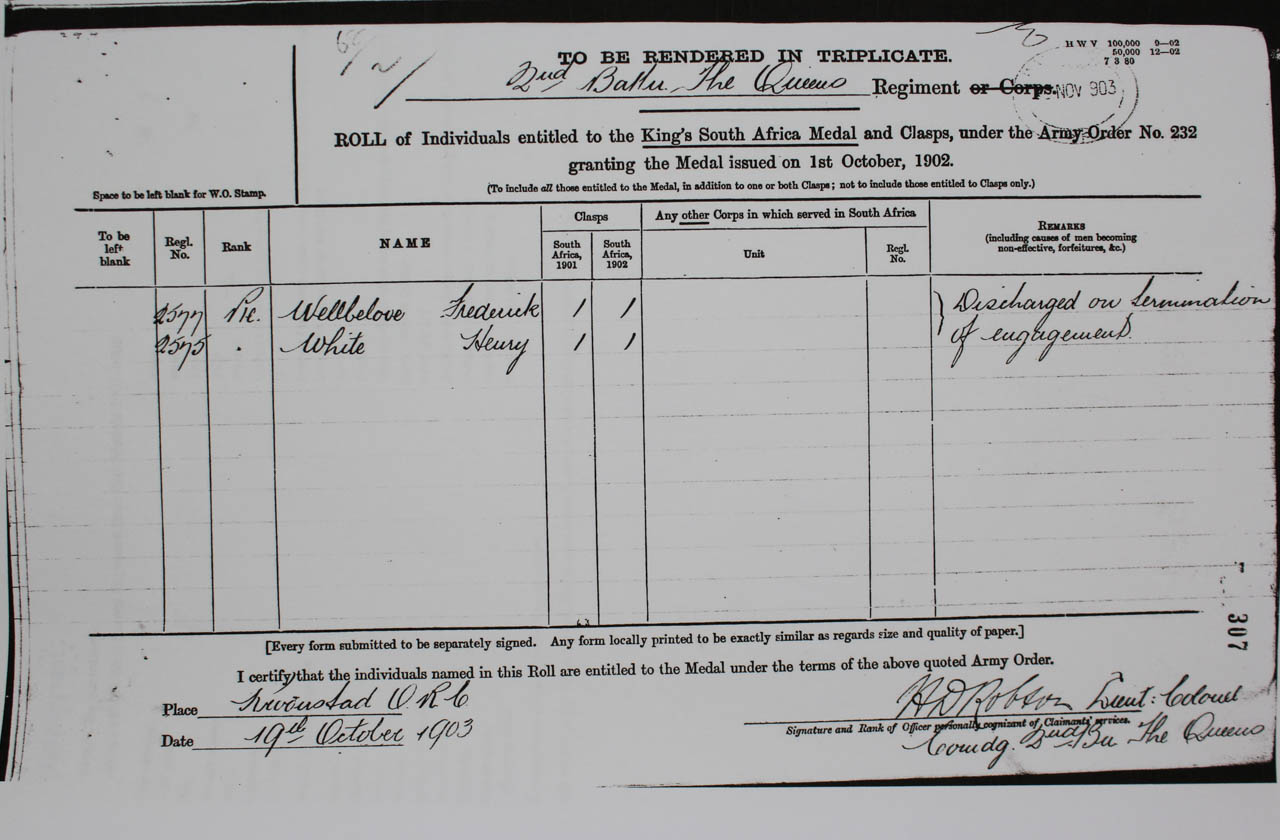 TO BE RENDERED IN TRIPLICATE.
H W V 100,000 9—02
50,000 12—02
7 3 80
2nd Battn. The Queens Regiment or Corps.
NOV 903
ROLL of Individuals entitled to the King's South Africa Medal and Clasps, under the Army Order No. 232
granting the Medal issued on 1st October, 1902.
(To include all those entitled to the Medal, in addition to one or both Clasps; not to include those entitled to Clasps only.)
Space to be left blank for W.O. Stamp.
To be left blank
Regl. No.
Rank
NAME
Clasps
South Africa, 1901
South Africa, 1902
Any other Corps in which served in South Africa
Unit
Regl. No.
REMARKS
(including causes of men becoming
non-effective, forfeitures, &c.)
2577 Pte. Wellbelove Frederick 1 1 } Discharged on termination
2575 . White Henry 1 1 of engagement.
[Every form submitted to be separately signed. Any form locally printed to be exactly similar as regards size and quality of paper.]
307
I certify that the individuals named in this Roll are entitled to the Medal under the terms of the above quoted Army Order.
Place O R C
Date 19th October 1903
H D Robson Lieut: Colonel
Signature and Rank of Officer personally cognizant of Claimants' services.
Comdg. 2nd Bn The Queens